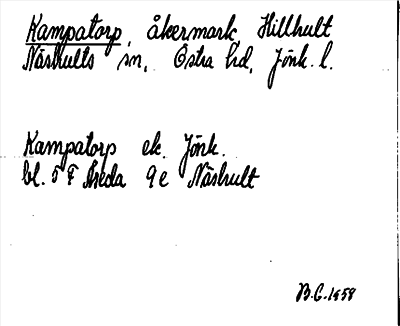 Kampatorp, åkermark, Hillhult
Näshults sn, Östra hd, Jönk. l.
Kampatorp ek. Jönk.
bl. 5 F Åseda 9 e Näshult
B.G. 1958